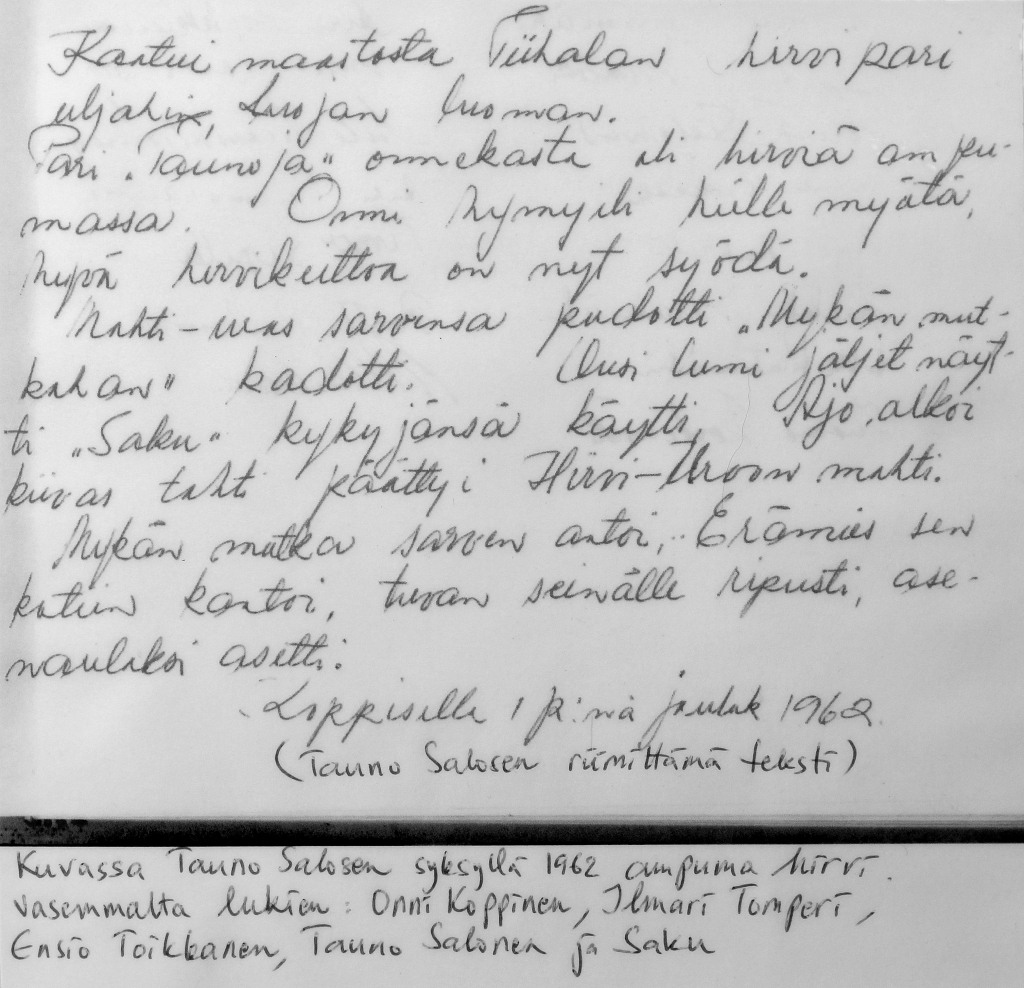 Kaatui maastosta Tiihalan hirvipari
uljahin, Luojan luoman.
Pari "Taunoja" onnekasta oli hirviä ampu-
massa. Onni hymyili heille myötä,
hyvä hirvikeittoa on nyt syödä.
Mahti-uros sarvensa pudotti "Mykän mut-
kahan" kadotti. Uusi lumi jäljet näyt-
ti "Saku" kykyjänsä käytti, Ajo alkoi
kiivas tahti päättyi Hirvi-Uroon mahti.
Mykän mutka sarven antoi, Erämies sen
kotiin kantoi, tuvan seinälle ripusti, ase-
naulaksi asetti.
Loppisella 1 p:nä jouluk 1962
(Tauno Salosen riimittämä teksti)
Kuvassa Tauno Salosen syksyllä 1962 ampuma hirvi.
vasemmalta lukien: Onni Koppinen, Ilmari Tomperi,
Ensio Toikkanen, Tauno Salonen ja Saku